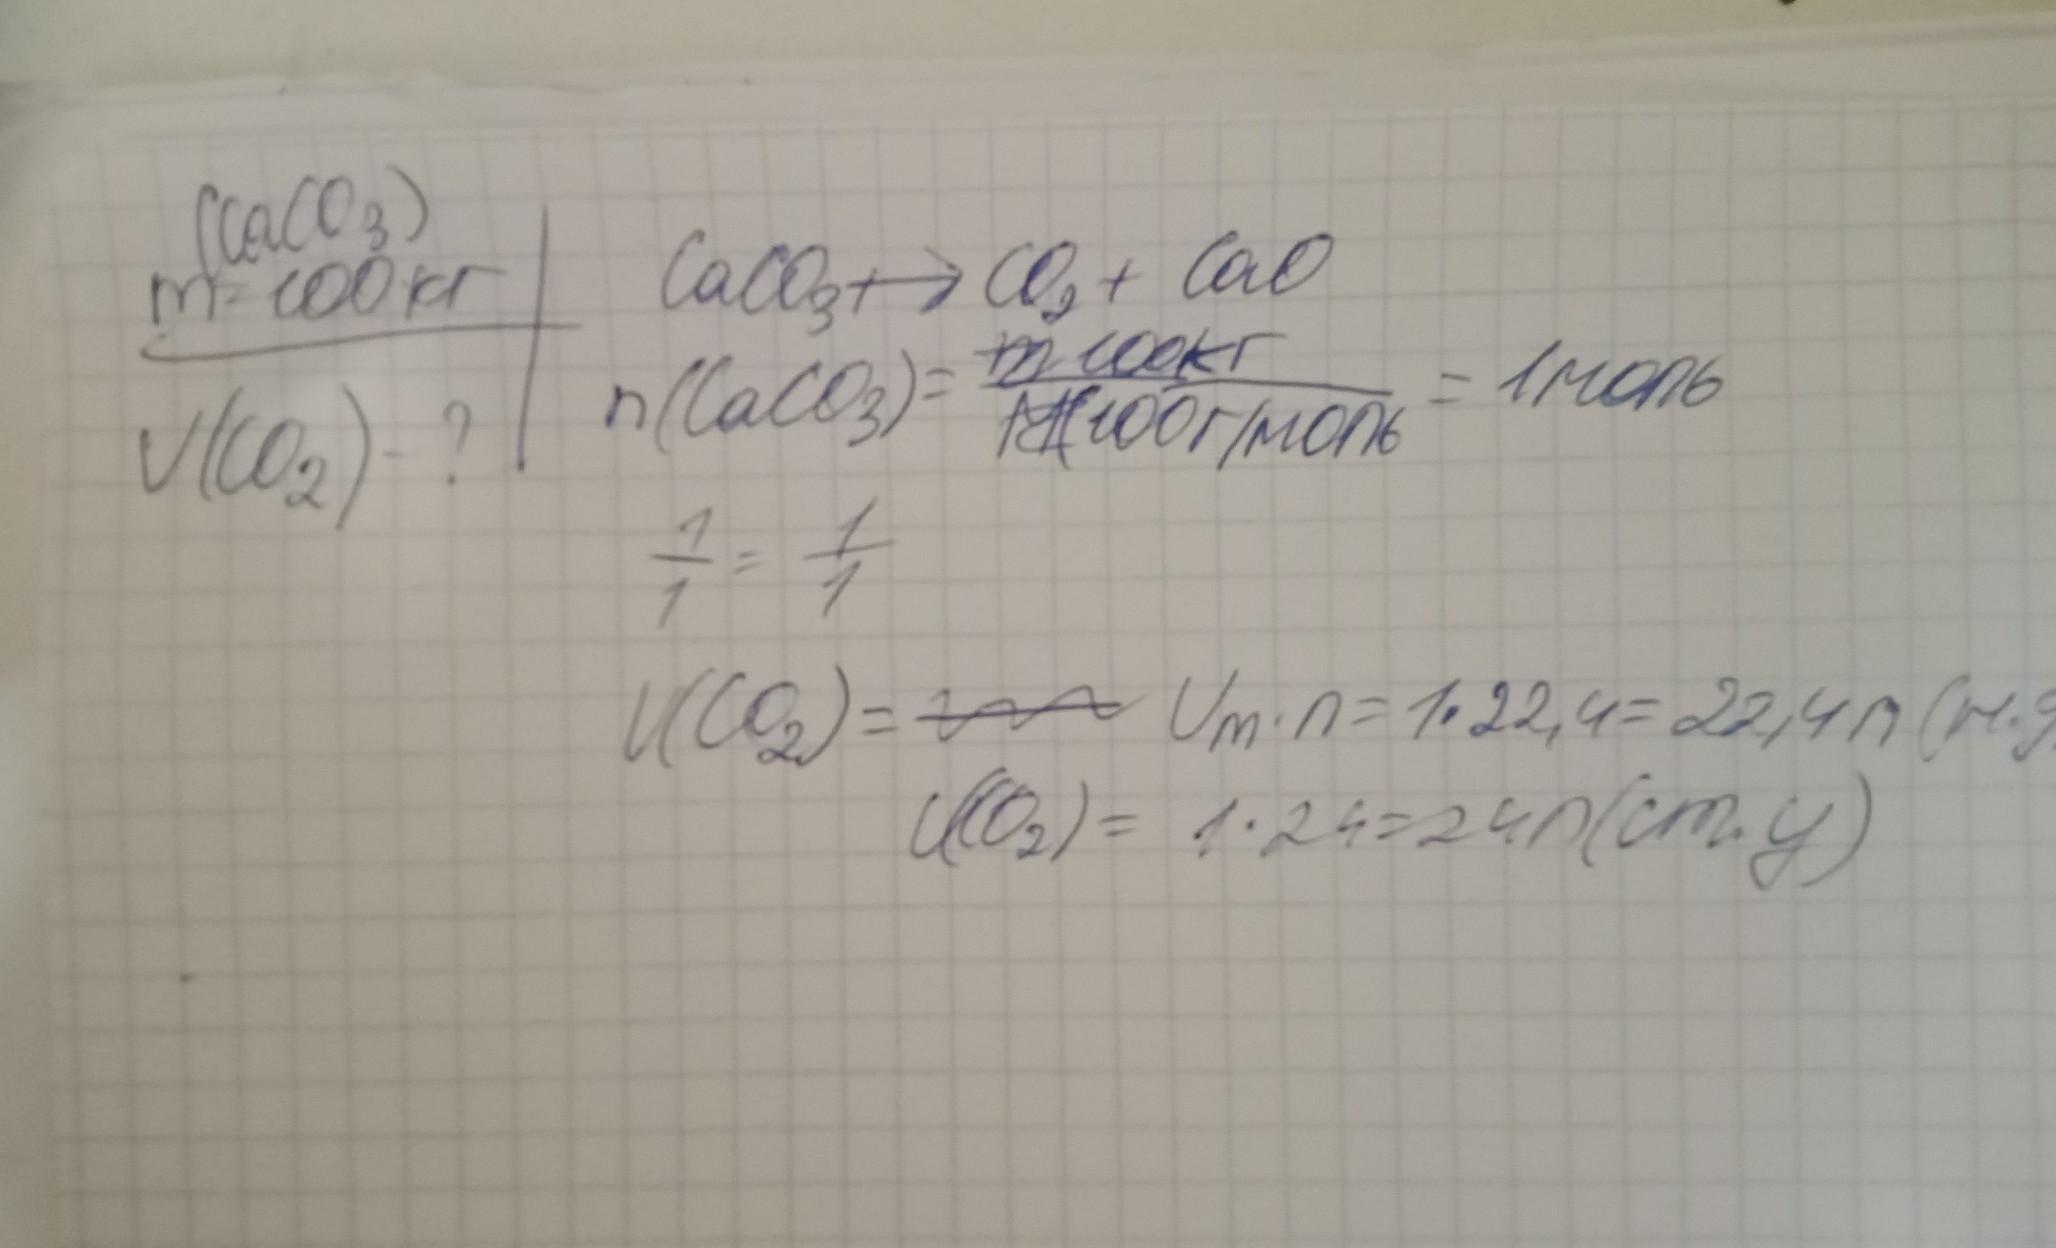 (CaCO₃)
m=100кг
V(CO₂) - ?
CaCO₃ → CO₂ + CaO
n(CaCO₃) = 100кг / 100г/моль = 1моль
1/1 = 1/1
V(CO₂) = Vm·n = 1·22,4 = 22,4л (н.у
V(CO₂) = 1·24=24л(ст.у)